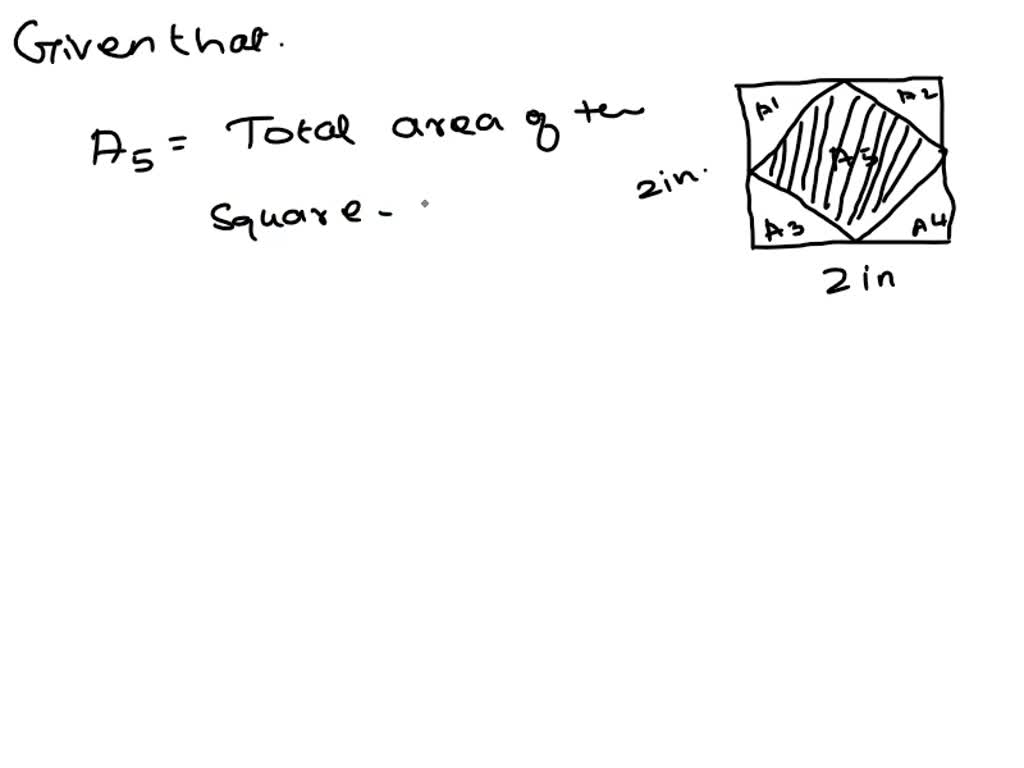 Given that.
A5 = Total area of the
square -
A1
A2
A5
A3
A4
2in.
2in